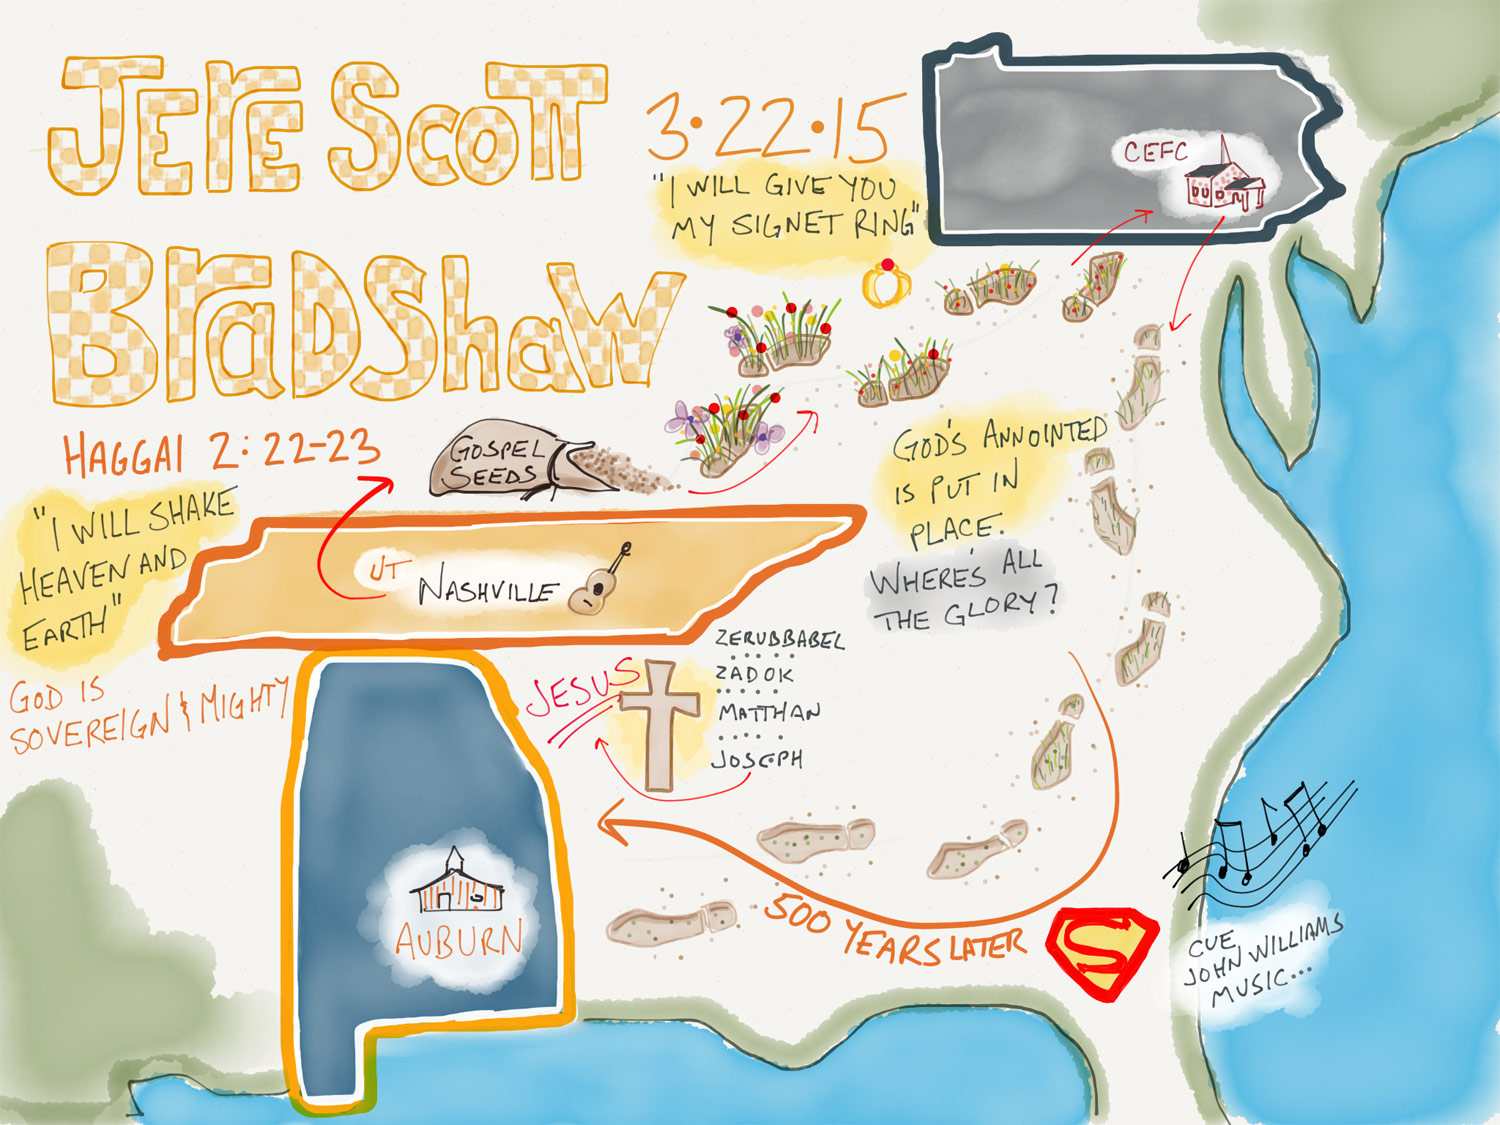 JERE SCOTT
BRADSHAW
3•22•15
"I WILL GIVE YOU
MY SIGNET RING"
CEFC
HAGGAI 2:22-23
"I WILL SHAKE
HEAVEN AND
EARTH"
GOD IS
SOVEREIGN & MIGHTY
GOSPEL
SEEDS
UT
NASHVILLE
GOD'S ANNOINTED
IS PUT IN
PLACE.
WHERE'S ALL
THE GLORY?
JESUS
ZERUBBABEL
ZADOK
MATTHAN
JOSEPH
AUBURN
500 YEARS LATER
S
CUE
JOHN WILLIAMS
MUSIC...